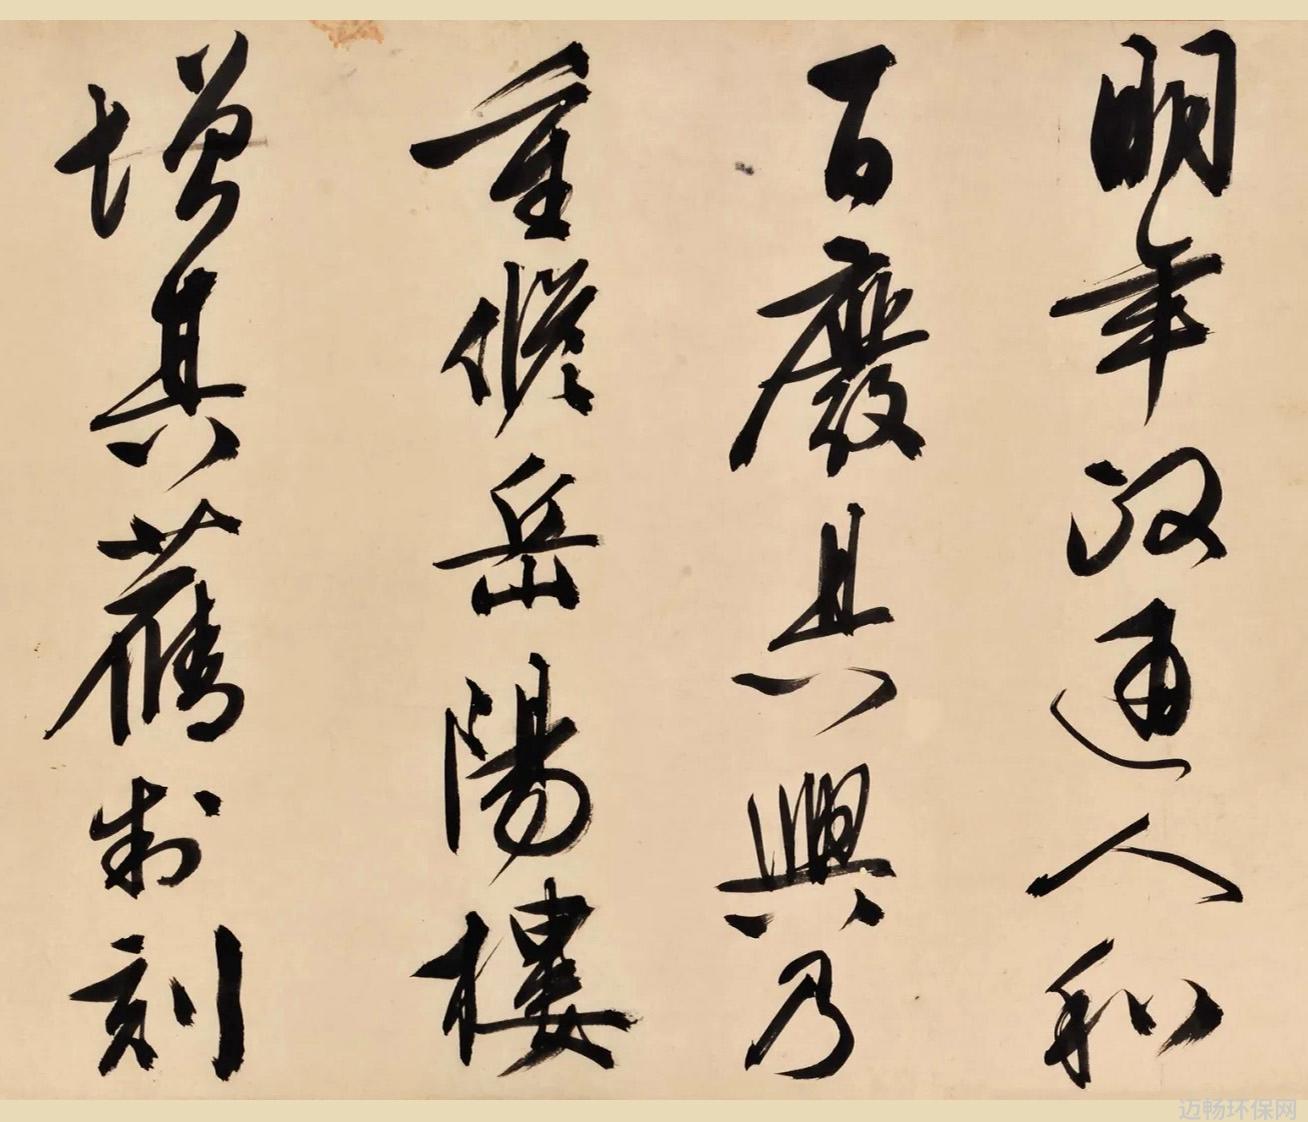 明年政通人和
百廢具興乃
重修岳陽樓
增其舊制刻
迈畅环保网